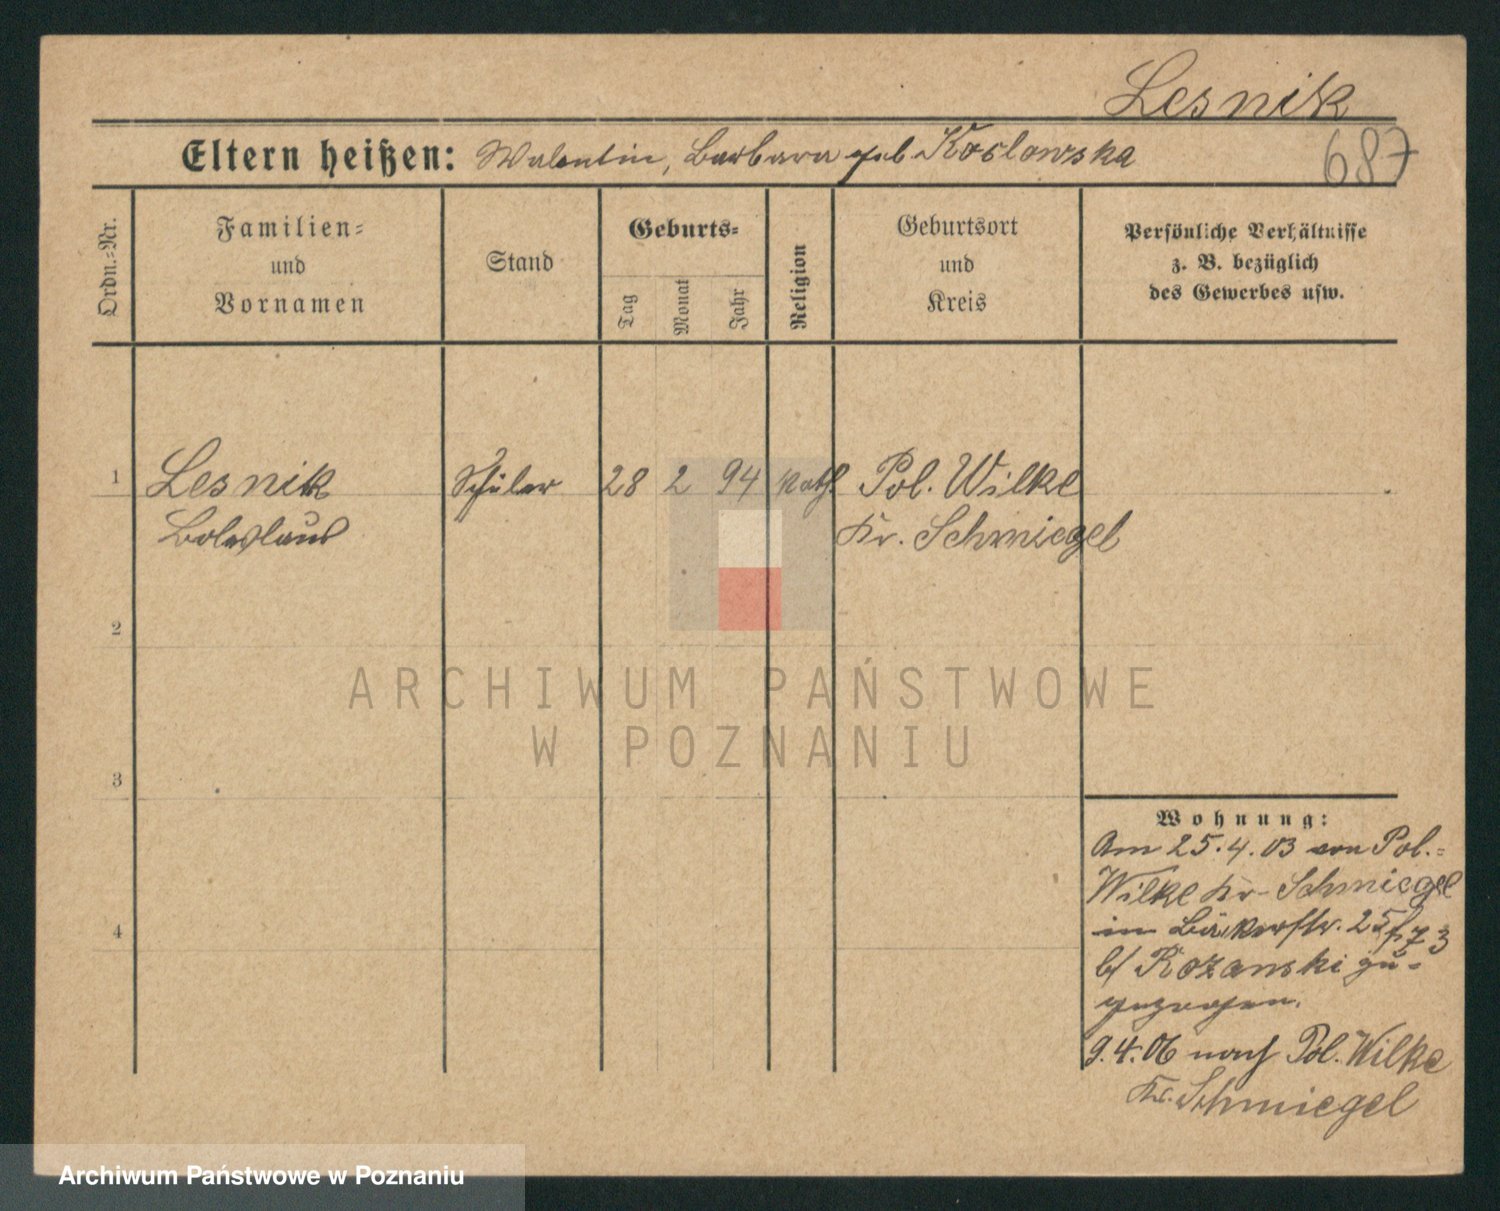 Lesnik
Eltern heißen: Walentin, Barbara geb Koslowska
687
Ordn.-Nr.
Familien-
und
Vornamen
Stand
Geburts-
Tag
Monat
Jahr
Religion
Geburtsort
und
Kreis
Persönliche Verhältnisse
z. B. bezüglich
des Gewerbes usw.
1 Lesnik Schüler 28 2 94 kath Pol. Wilke
Boleslaus Kr. Schmiegel
2
3
4
Wohnung:
Am 25.4.03 von Pol.-
Wilke Kr. Schmiegel
in Bäckerstr. 25
b/ Rozanski zu-
gezogen.
9.4.06 nach Pol. Wilke
Kr. Schmiegel
ARCHIWUM PAŃSTWOWE
W POZNANIU
Archiwum Państwowe w Poznaniu